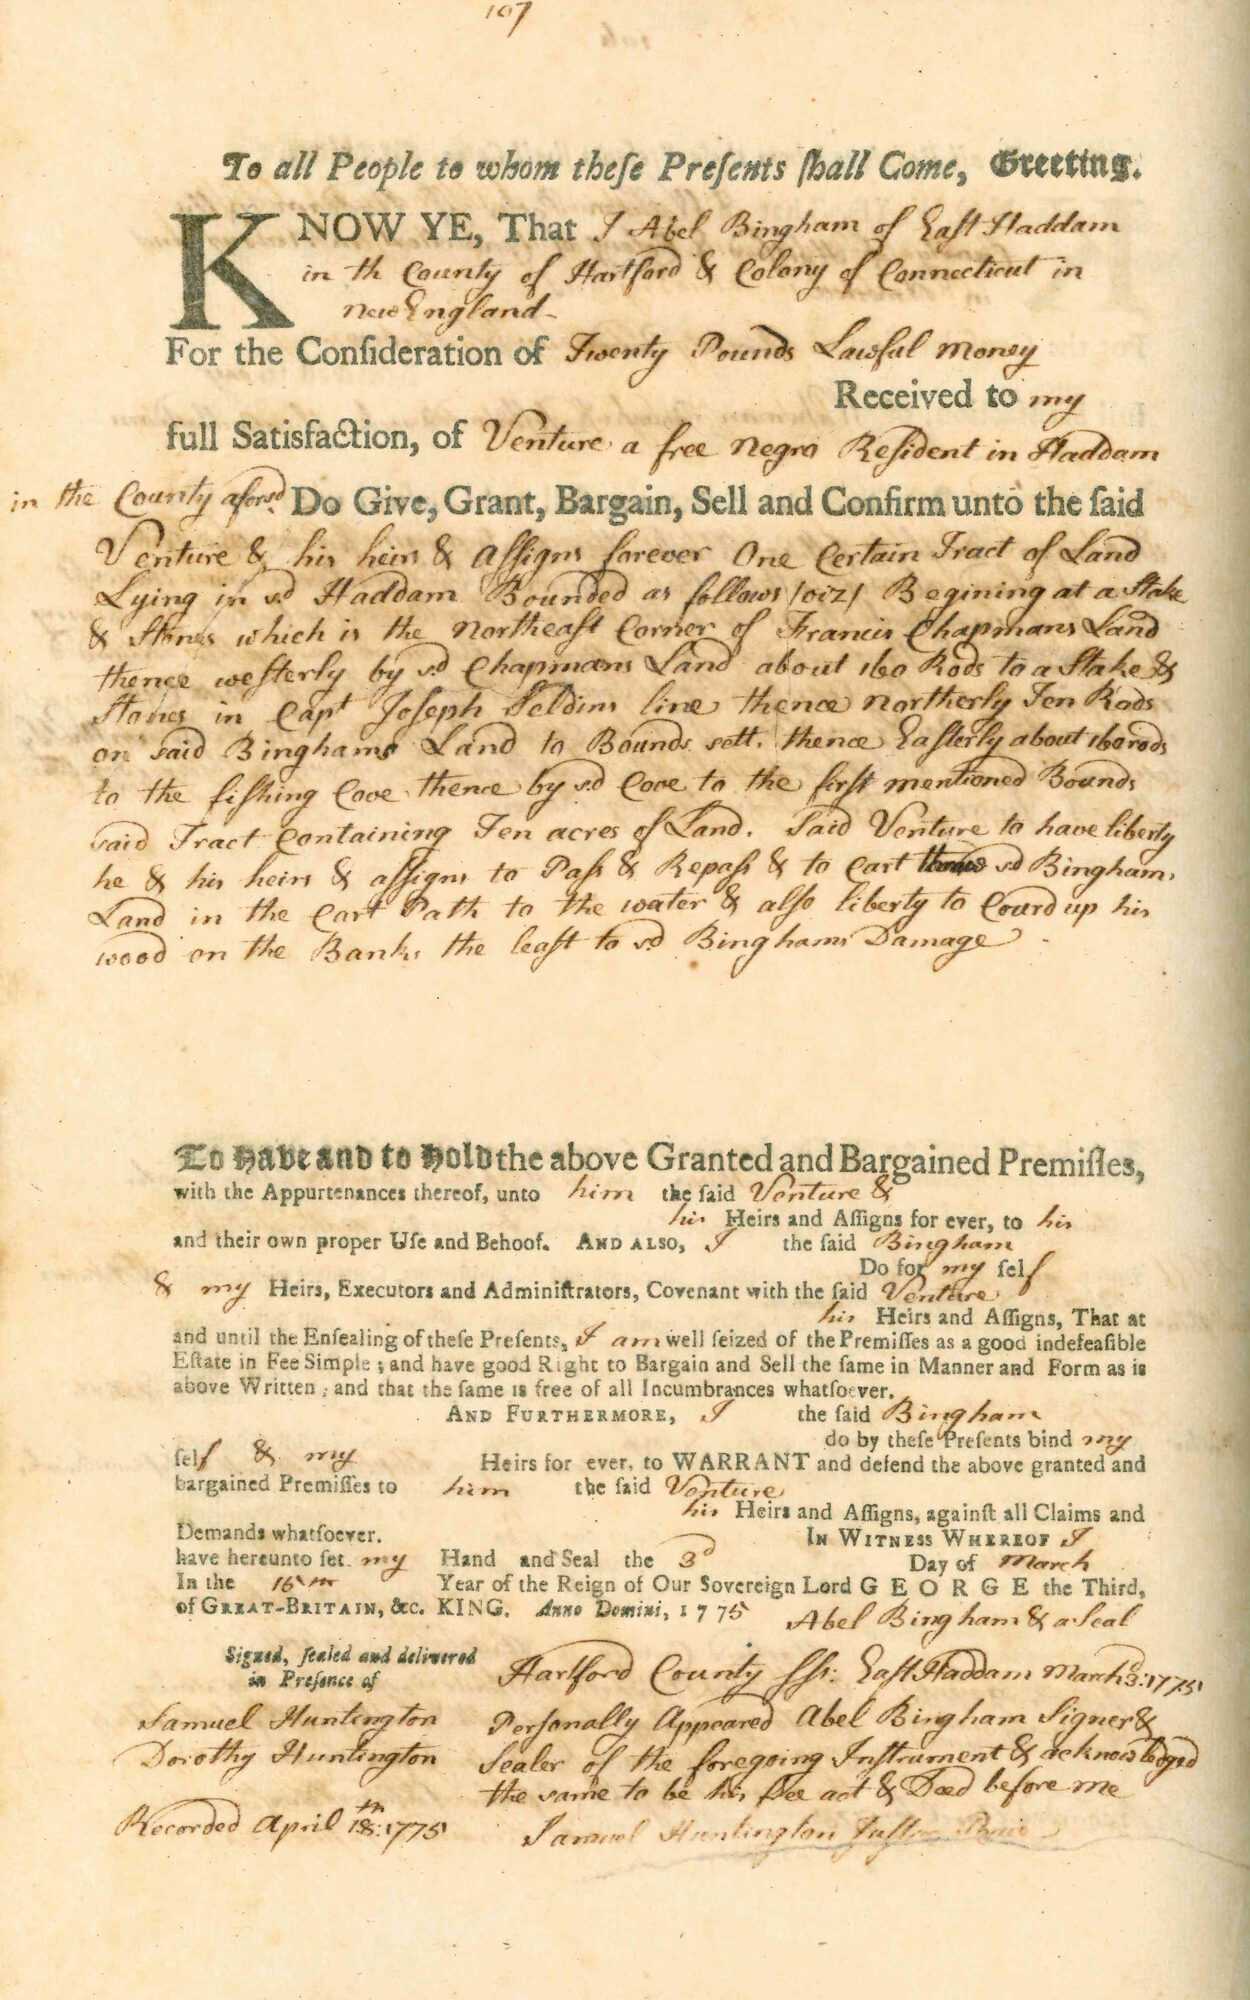 107
To all People to whom theſe Preſents ſhall Come, Greeting.
KNOW YE, That I Abel Bingham of Eaſt Haddam
in th County of Hartford & Colony of Connecticut in
New England
For the Conſideration of Twenty Pounds Lawful Money
Received to my
full Satisfaction, of Venture a free Negro Reſident in Haddam
in the County aforsd. Do Give, Grant, Bargain, Sell and Confirm unto the ſaid
Venture & his heirs & Aſſigns forever One Certain Tract of Land
Lying in sd Haddam Bounded as follows /viz/ Begining at a Stake
& Stones which is the Northeaſt Corner of Francis Chapmans Land
thence weſterly by sd Chapmans Land about 160 Rods to a Stake &
Stones in Capt Joſeph Seldins line thence Northerly Ten Rods
on said Binghams Land to Bounds sett. thence Eaſterly about 160 rods
to the fiſhing Cove thence by sd Cove to the firſt mentioned Bounds
said Tract Containing Ten acres of Land. Said Venture to have liberty
he & his heirs & aſſigns to Paſs & Repaſs & to Cart sd Binghams
Land in the Cart Path to the water & alſo liberty to Courd up his
wood on the Banks the leaſt to sd Binghams Damage
To Have and to Hold the above Granted and Bargained Premiſſes,
with the Appurtenances thereof, unto him the ſaid Venture &
his Heirs and Aſſigns for ever, to his
and their own proper Uſe and Behoof. AND ALSO, I the ſaid Bingham
Do for my ſelf
& my Heirs, Executors and Adminiſtrators, Covenant with the ſaid Venture
his Heirs and Aſſigns, That at
and until the Enſealing of theſe Preſents, I am well ſeized of the Premiſſes as a good indefeaſible
Eſtate in Fee Simple; and have good Right to Bargain and Sell the ſame in Manner and Form as is
above Written; and that the ſame is free of all Incumbrances whatſoever.
AND FURTHERMORE, I the ſaid Bingham
do by theſe Preſents bind my
ſelf & my Heirs for ever, to WARRANT and defend the above granted and
bargained Premiſſes to him the ſaid Venture
his Heirs and Aſſigns, againſt all Claims and
Demands whatſoever. IN WITNESS WHEREOF I
have hereunto ſet my Hand and Seal the 3d Day of March
In the 15th Year of the Reign of Our Sovereign Lord GEORGE the Third,
of GREAT-BRITAIN, &c. KING. Anno Domini, 1775 Abel Bingham & a Seal
Signed, ſealed and delivered
in Preſence of
Samuel Huntington
Dorothy Huntington
Recorded April 18th: 1775
Hartford County ſſ: Eaſt Haddam March 3d: 1775
Perſonally Appeared Abel Bingham Signer &
Sealer of the foregoing Inſtrument & acknowledged
the same to be his free act & Deed before me
Samuel Huntington Juſtice Peace